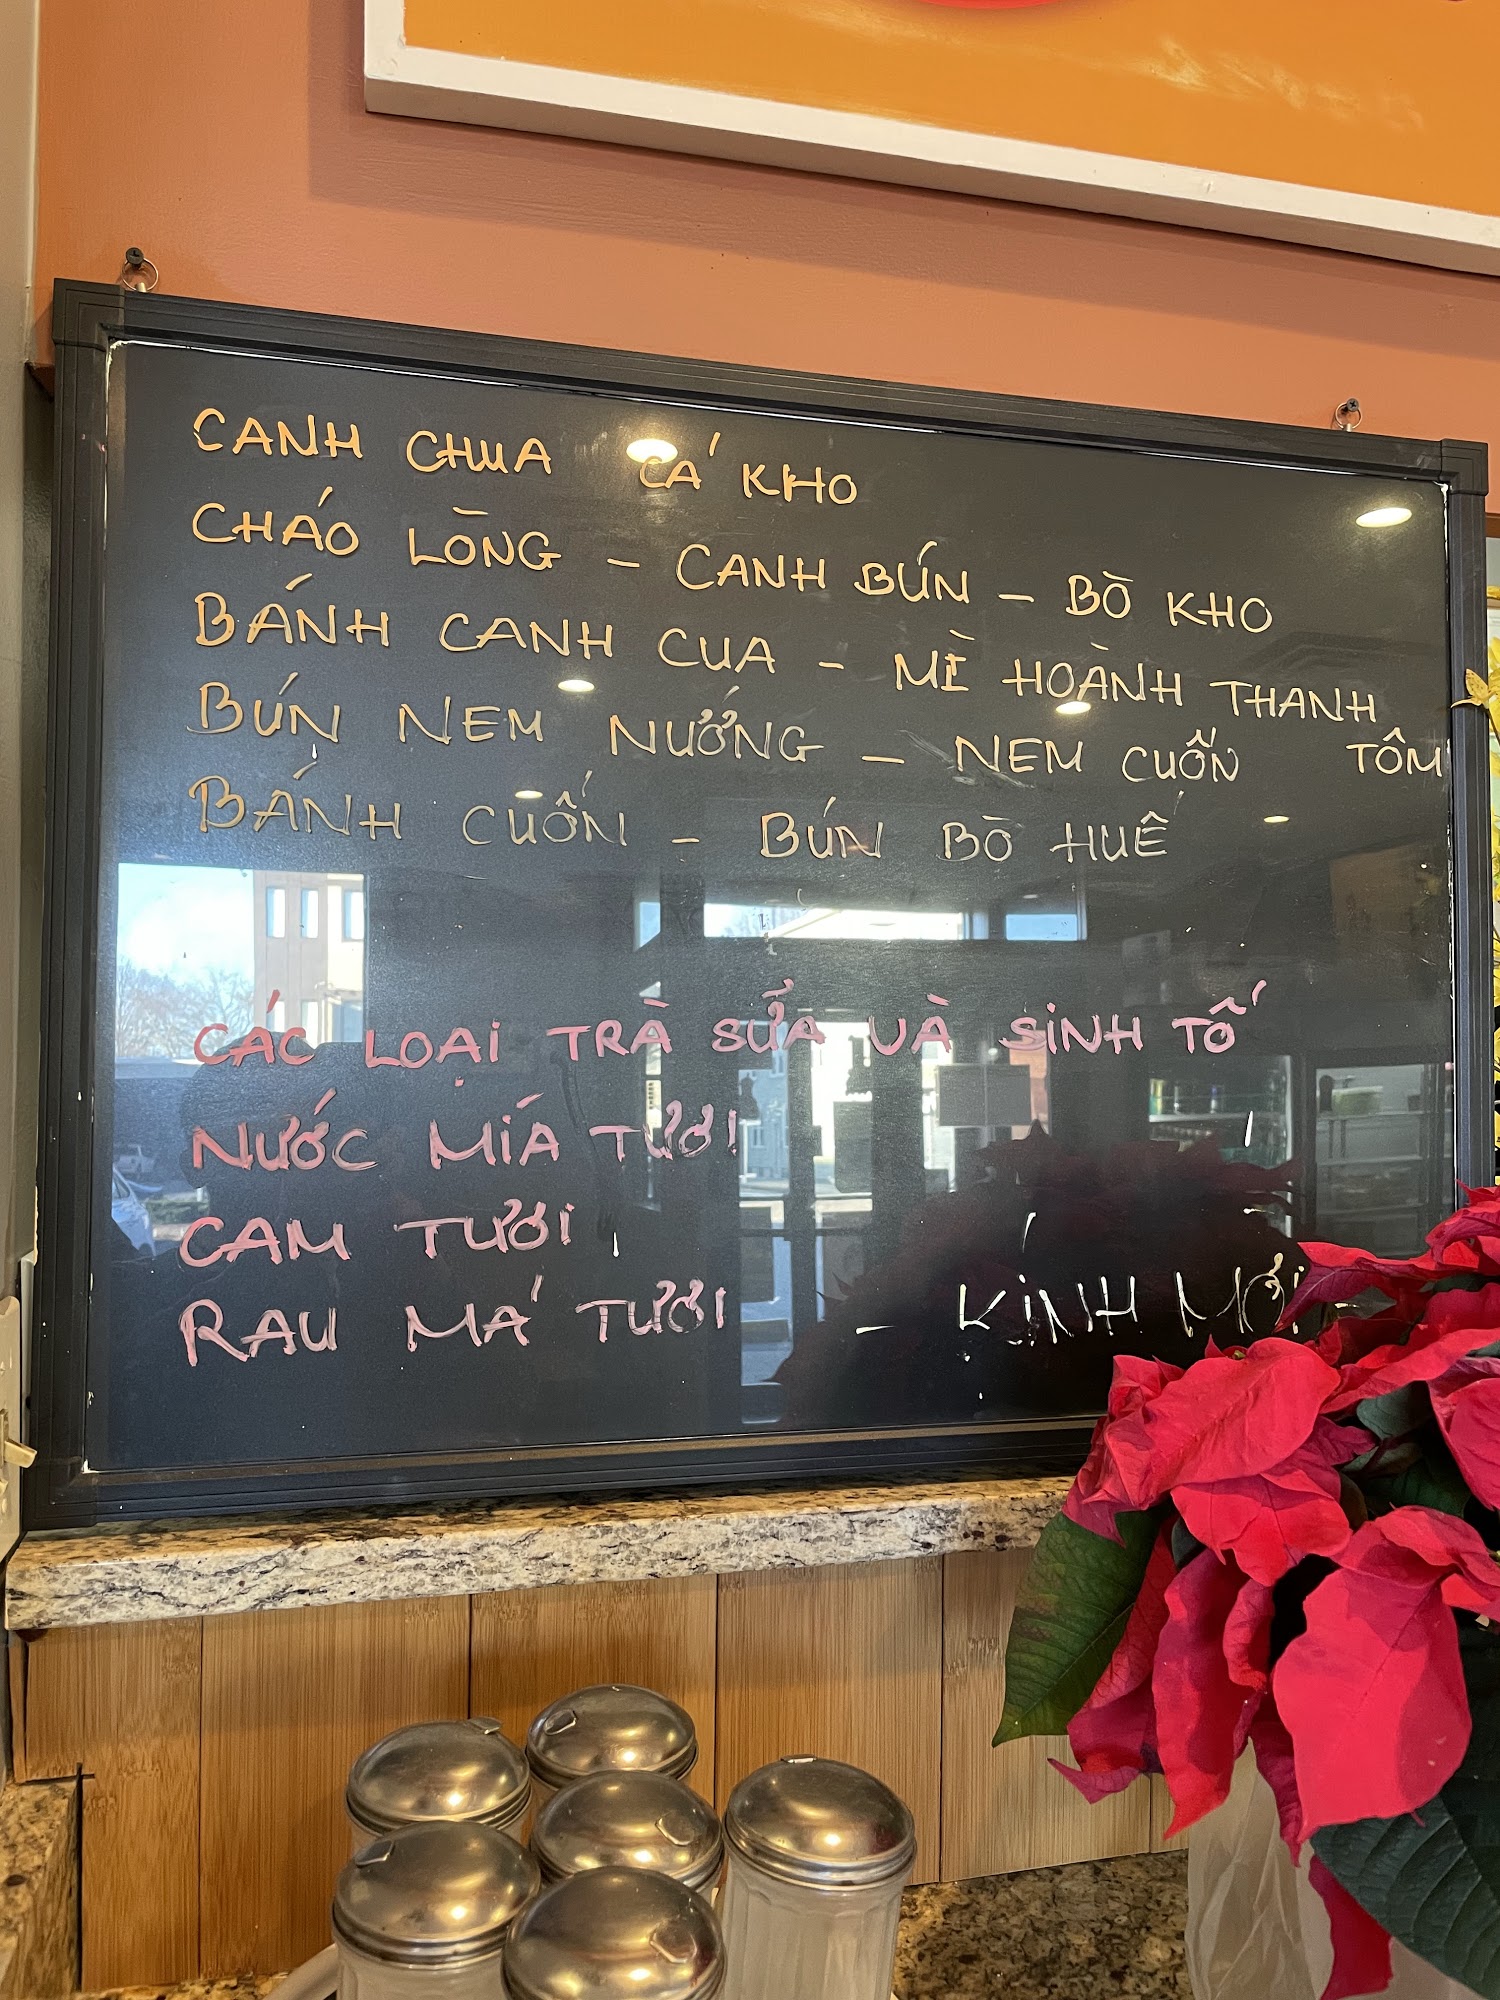 CANH CHUA CÁ KHO
CHÁO LÒNG - CANH BÚN - BÒ KHO
BÁNH CANH CUA - MÌ HOÀNH THANH
BÚN NEM NƯỚNG - NEM CUỐN TÔM
BÁNH CUỐN - BÚN BÒ HUẾ
CÁC LOẠI TRÀ SỮA VÀ SINH TỐ
NƯỚC MÍA TƯƠI
CAM TƯƠI
RAU MÁ TƯƠI - KÍNH MỜI